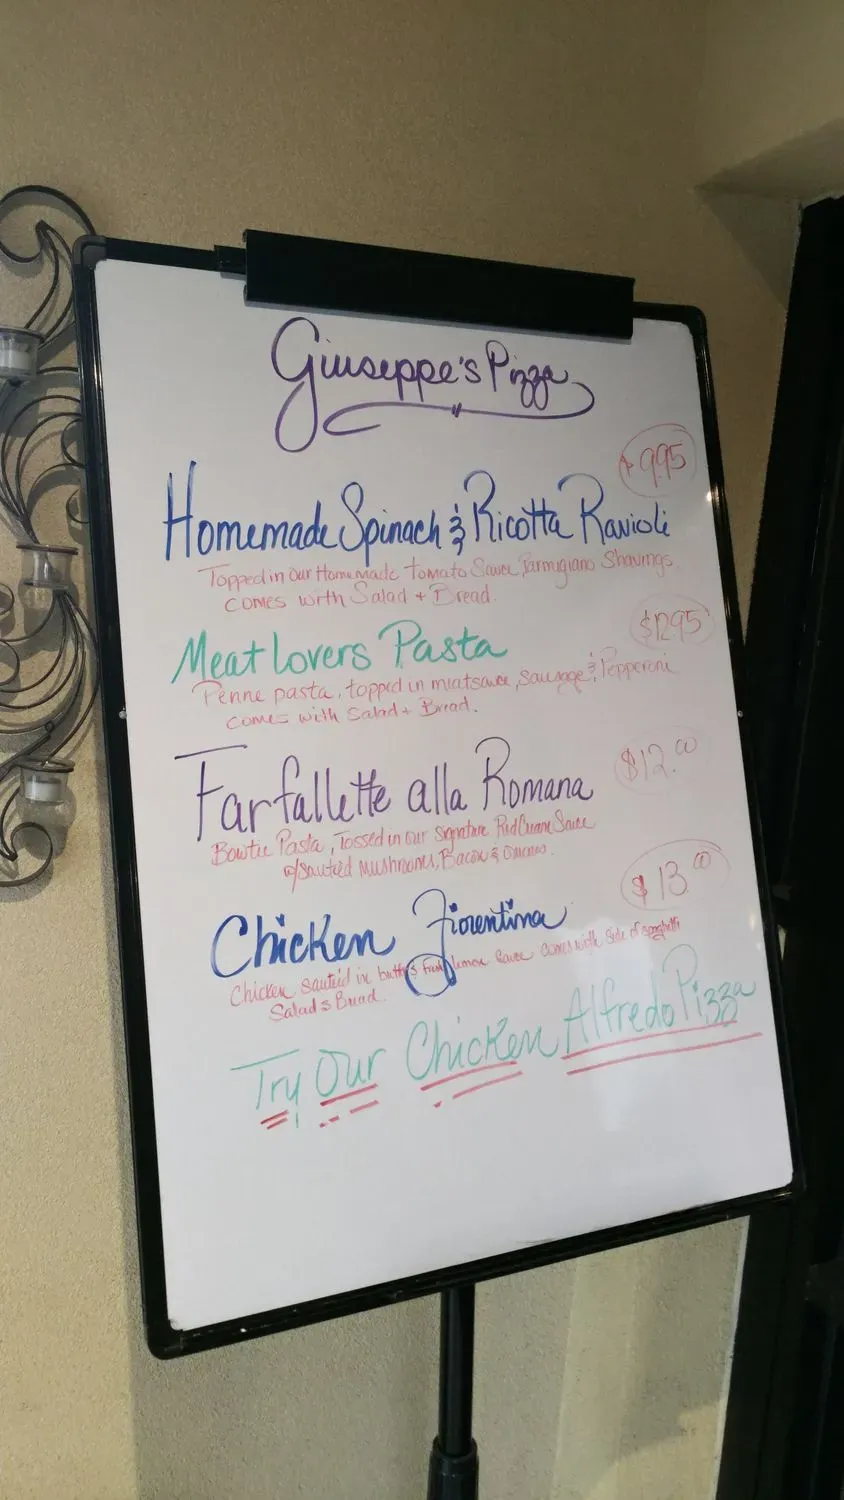 Giuseppe's Pizza
$9.95
Homemade Spinach & Ricotta Ravioli
Topped in our Homemade tomato Sauce, Parmigiano Shavings
comes with Salad + Bread.
$12.95
Meat Lovers Pasta
Penne pasta, topped in meatsauce, Sausage & Pepperoni
comes with Salad + Bread.
$12.00
Farfallette alla Romana
Bowtie Pasta, Tossed in our signature Red Cream Sauce
w/sautéed Mushrooms, Bacon & Onions.
$13.00
Chicken Fiorentina
Chicken sautéed in butter & fresh lemon sauce comes with side of spaghetti
Salad & Bread.
Try Our Chicken Alfredo Pizza